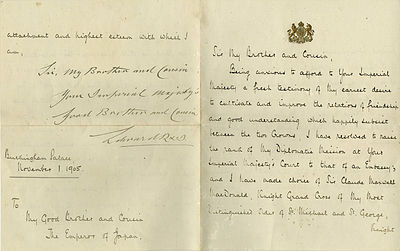 Sir My Brother and Cousin,
Being anxious to afford to Your Imperial
Majesty a fresh testimony of My earnest desire
to cultivate and improve the relations of Friendship
and good understanding which happily subsist
between the two Crowns, I have resolved to raise
the rank of My Diplomatic Mission at Your
Imperial Majesty's Court to that of an Embassy,
and I have made choice of Sir Claude Maxwell
MacDonald, Knight Grand Cross of My Most
Distinguished Order of St. Michael and St. George,
Knight
attachment and highest esteem with which I
am,
Sir, My Brother and Cousin
Your Imperial Majesty's
Good Brother and Cousin
Edward R & I
Buckingham Palace,
November 1. 1905.
To
My Good Brother and Cousin
The Emperor of Japan.